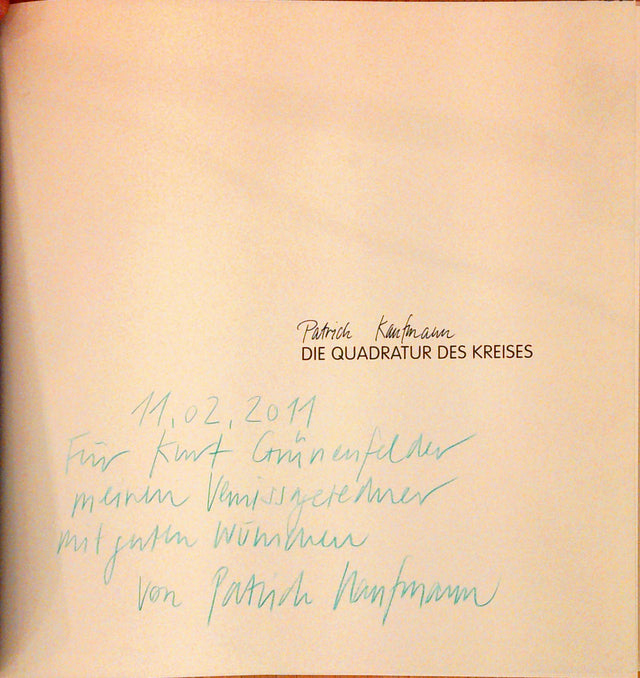 Patrick Kaufmann
DIE QUADRATUR DES KREISES
11.02.2011
Für Kurt Grünenfelder
meinen Vernissageredner
mit guten Wünschen
von Patrick Kaufmann